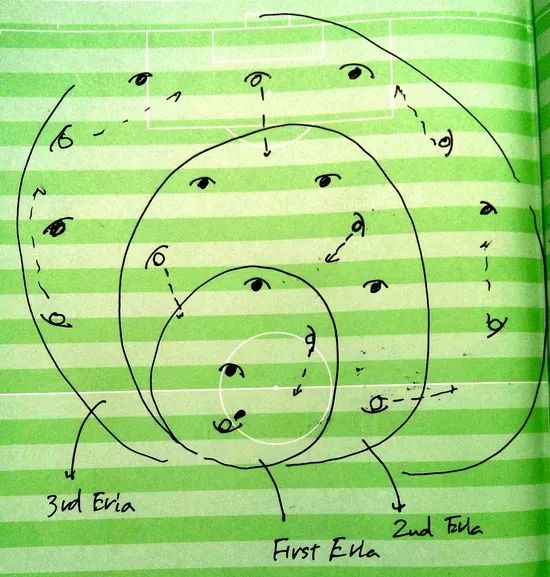 3rd Eria
2nd Erla
First Erla